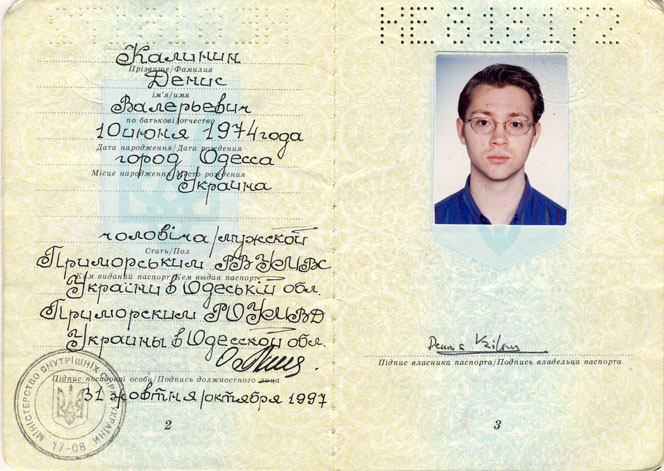 Калинин
Прізвище/Фамилия
Денис
ім'я/имя
Валерьевич
по батькові/отчество
10 июня 1974 года
Дата народження/Дата рождения
город Одесса
Місце народження/Место рождения
Украина
чоловіча/мужской
Стать/Пол
Приморським РВ УМВС
Ким виданий паспорт/Кем выдан паспорт
України в Одеській обл.
Приморским РО УМВД
Украины в Одесской обл.
Підпис посадової особи/Подпись должностного лица
31 жовтня/октября 1997
МІНІСТЕРСТВО ВНУТРІШНІХ СПРАВ УКРАЇНИ
17-08
2
КЕ 818172
Підпис власника паспорта/Подпись владельца паспорта
3